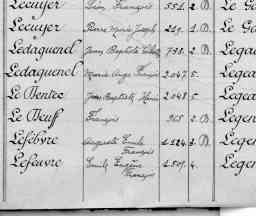 Lecuyer Léon François 551. 2. B. Le G
Lecuyer Pierre Marie Joseph 219. 1. B. Le G
Ledaguenel Jean Baptiste 798. 2. B. Lega
Ledaguenel Marie Ange François 2.047. 5. Legea
Le Dentec Jean Baptiste Marie 2.048. 5. Legen
Le Deuff François 965 2. B. Legen
Lefebvre Auguste Emile François 1.124. 3. B. Legen
Lefeuvre Emile Eugène François 1.509. 4. Legen